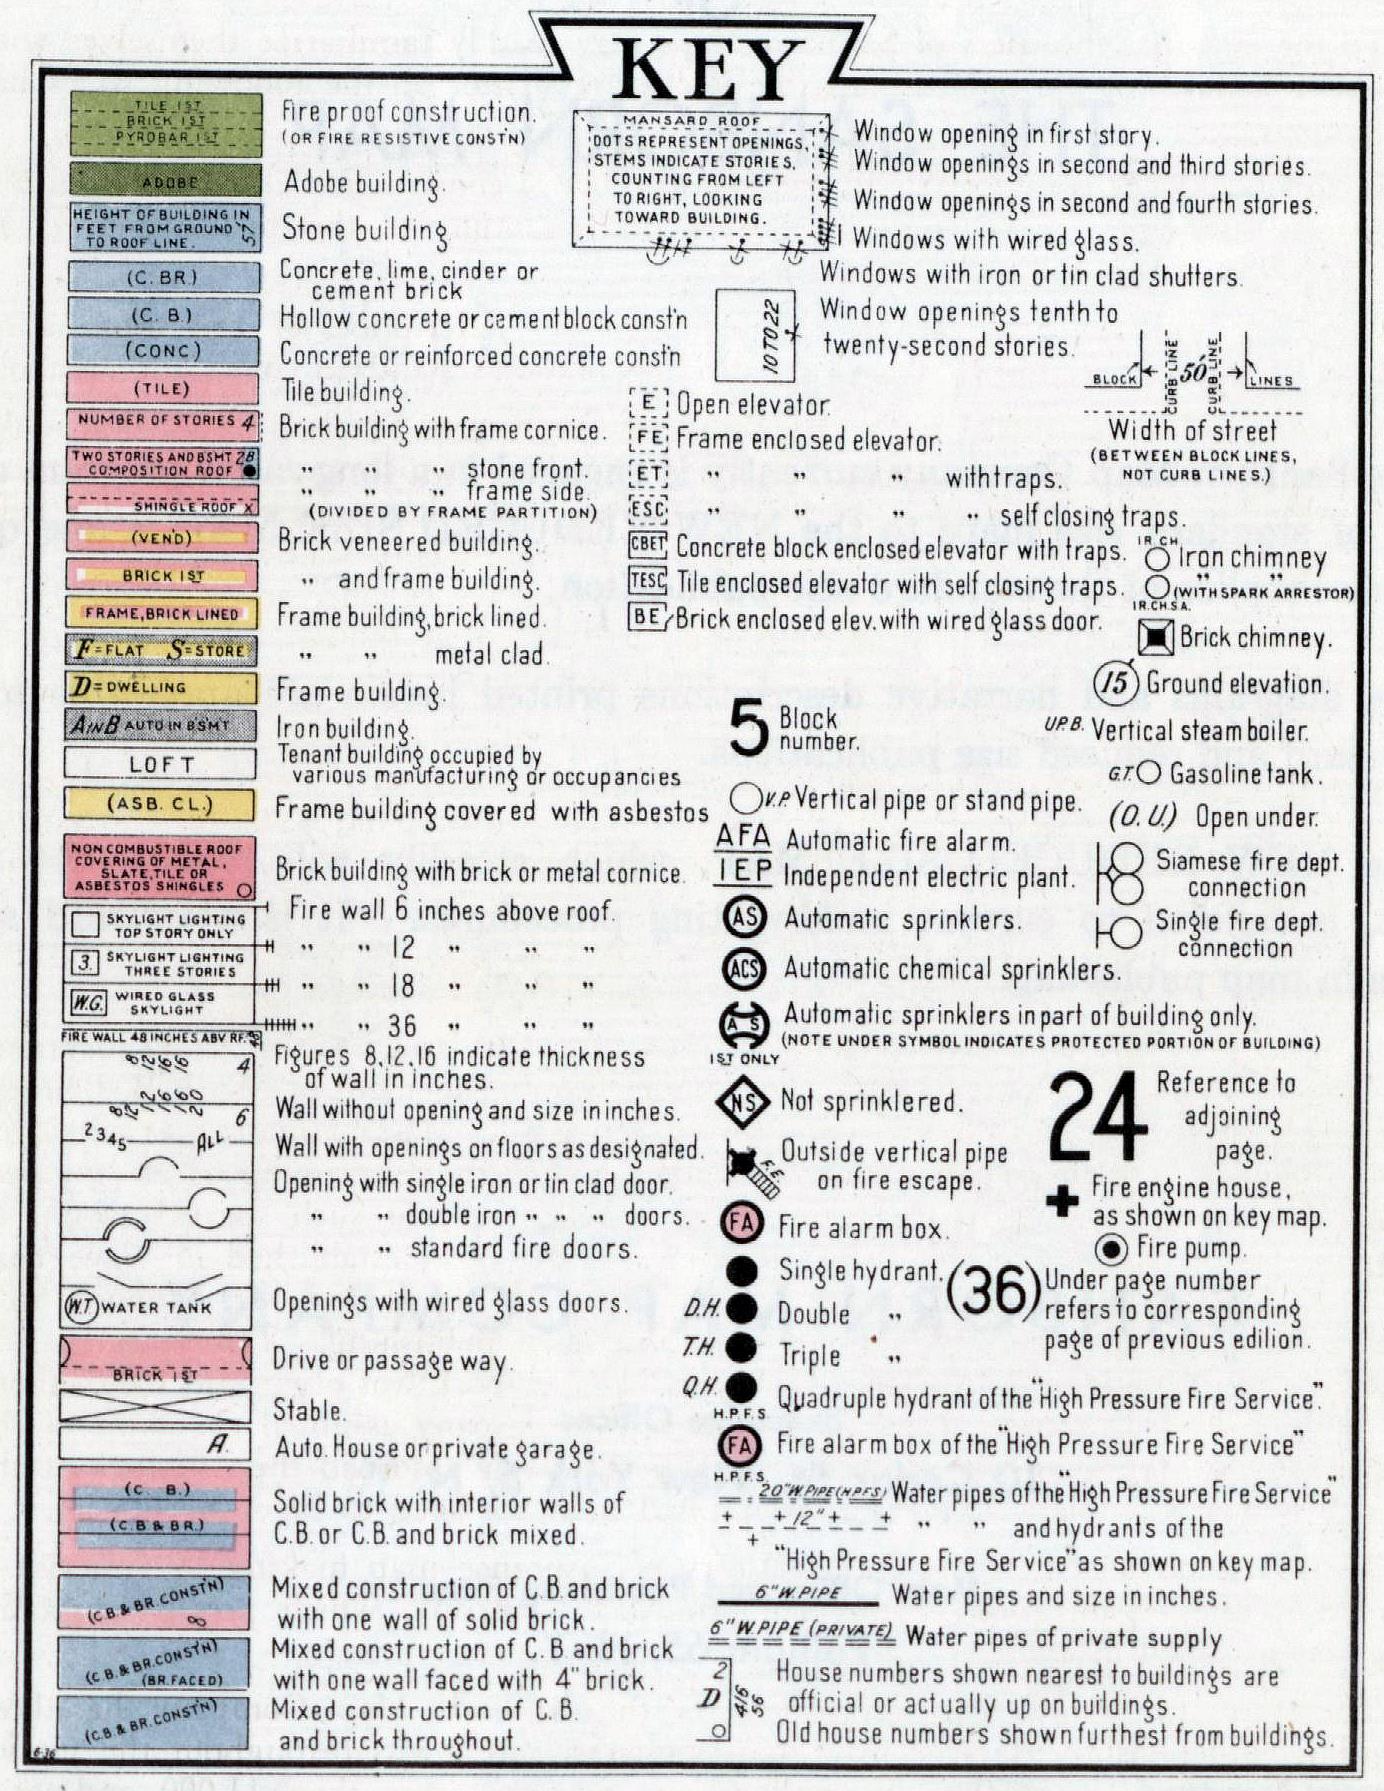 KEY
TILE 1ST
BRICK 1ST
PYROBAR 1ST
Fire proof construction.
(OR FIRE RESISTIVE CONST'N)
ADOBE
Adobe building.
HEIGHT OF BUILDING IN
FEET FROM GROUND
TO ROOF LINE.
57
Stone building.
(C. BR.)
Concrete, lime, cinder or
cement brick
(C. B.)
Hollow concrete or cement block const'n
(CONC)
Concrete or reinforced concrete const'n
(TILE)
Tile building.
NUMBER OF STORIES 4
Brick building with frame cornice.
TWO STORIES AND BSMT 2B
COMPOSITION ROOF
" " " stone front.
SHINGLE ROOF X
" " " frame side.
(DIVIDED BY FRAME PARTITION)
(VEN'D)
Brick veneered building.
BRICK 1ST
" and frame building.
FRAME, BRICK LINED
Frame building, brick lined.
F=FLAT S=STORE
" " metal clad.
D=DWELLING
Frame building.
A IN B AUTO IN B'SMT
Iron building.
LOFT
Tenant building occupied by
various manufacturing or occupancies
(ASB. CL.)
Frame building covered with asbestos
NON COMBUSTIBLE ROOF
COVERING OF METAL,
SLATE, TILE OR
ASBESTOS SHINGLES
Brick building with brick or metal cornice.
SKYLIGHT LIGHTING
TOP STORY ONLY
Fire wall 6 inches above roof.
" " 12 " " "
3. SKYLIGHT LIGHTING
THREE STORIES
" " 18 " " "
W.G. WIRED GLASS
SKYLIGHT
" " 36 " " "
FIRE WALL 48 INCHES ABV RF.
8 12 16 16 4
Figures 8, 12, 16 indicate thickness
of wall in inches.
8 12
12 16 16 20
6
Wall without opening and size in inches.
2 3 4 5 ALL
Wall with openings on floors as designated.
Opening with single iron or tin clad door.
" " double iron " " " doors.
" " standard fire doors.
W.T. WATER TANK
Openings with wired glass doors.
BRICK 1ST
Drive or passage way.
Stable.
A.
Auto. House or private garage.
(C. B.)
(C.B & BR.)
Solid brick with interior walls of
C.B. or C.B. and brick mixed.
(C.B. & BR. CONST'N)
8
Mixed construction of C.B. and brick
with one wall of solid brick.
(C.B. & BR. CONST'N)
(BR. FACED)
Mixed construction of C.B. and brick
with one wall faced with 4" brick.
(C.B. & BR. CONST'N)
Mixed construction of C.B.
and brick throughout.
6-36
MANSARD ROOF
DOTS REPRESENT OPENINGS,
STEMS INDICATE STORIES,
COUNTING FROM LEFT
TO RIGHT, LOOKING
TOWARD BUILDING.
Window opening in first story.
Window openings in second and third stories.
Window openings in second and fourth stories.
Windows with wired glass.
Windows with iron or tin clad shutters.
10 TO 22
Window openings tenth to
twenty-second stories.
BLOCK CURB LINE 50' CURB LINE LINES
Width of street
(BETWEEN BLOCK LINES,
NOT CURB LINES.)
E Open elevator.
FE Frame enclosed elevator.
ET " " " with traps.
ESC " " " " self closing traps.
CBET Concrete block enclosed elevator with traps.
TESC Tile enclosed elevator with self closing traps.
BE Brick enclosed elev. with wired glass door.
IR. CH. Iron chimney
(WITH SPARK ARRESTOR)
IR. CH. S.A.
Brick chimney.
15 Ground elevation.
5 Block
number.
U.P.B. Vertical steam boiler.
G.T. Gasoline tank.
V.P. Vertical pipe or stand pipe.
(O. U.) Open under.
AFA Automatic fire alarm.
IEP Independent electric plant.
Siamese fire dept.
connection
AS Automatic sprinklers.
Single fire dept.
connection
ACS Automatic chemical sprinklers.
A S Automatic sprinklers in part of building only.
(NOTE UNDER SYMBOL INDICATES PROTECTED PORTION OF BUILDING)
1ST ONLY
NS Not sprinklered.
24 Reference to
adjoining
page.
F.E. Outside vertical pipe
on fire escape.
Fire engine house,
as shown on key map.
FA Fire alarm box.
Fire pump.
Single hydrant.
D.H. Double "
T.H. Triple "
(36) Under page number
refers to corresponding
page of previous edilion.
Q.H. Quadruple hydrant of the "High Pressure Fire Service".
H.P.F.S.
FA Fire alarm box of the "High Pressure Fire Service"
H.P.F.S.
20" W. PIPE (H.P.F.S.) Water pipes of the "High Pressure Fire Service"
12" " " and hydrants of the
"High Pressure Fire Service" as shown on key map.
6" W. PIPE Water pipes and size in inches.
6" W. PIPE (PRIVATE) Water pipes of private supply
2
D
416
56
House numbers shown nearest to buildings are
official or actually up on buildings.
Old house numbers shown furthest from buildings.